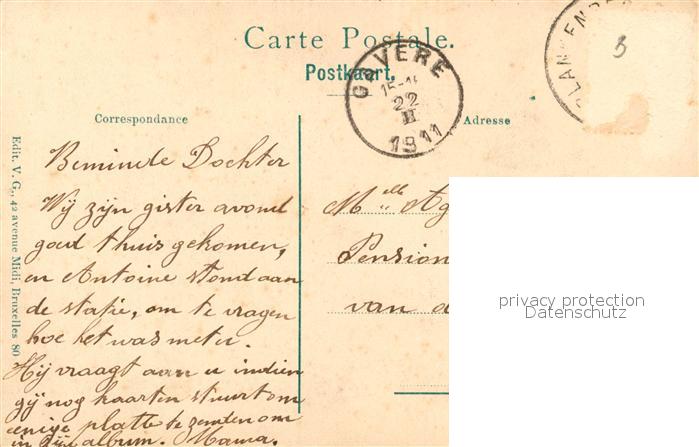 Carte Postale.
Postkaart.
GAVERE
15-1
22
II
1911
LANKENBE
3
Correspondance
Adresse
Edit. V. G., 42 avenue Midi, Bruxelles 80
Beminde Dochter
Wij zijn gister avond
goed thuis gekomen,
en Antoine stond aan
de statie, om te vragen
hoe het was met u.
Hij vraagt aan u indien
gij nog kaarten stuurt om
eenige platte te zenden om
in zijn album. Mama.
Melle Ag
Pension
van d
privacy protection
Datenschutz